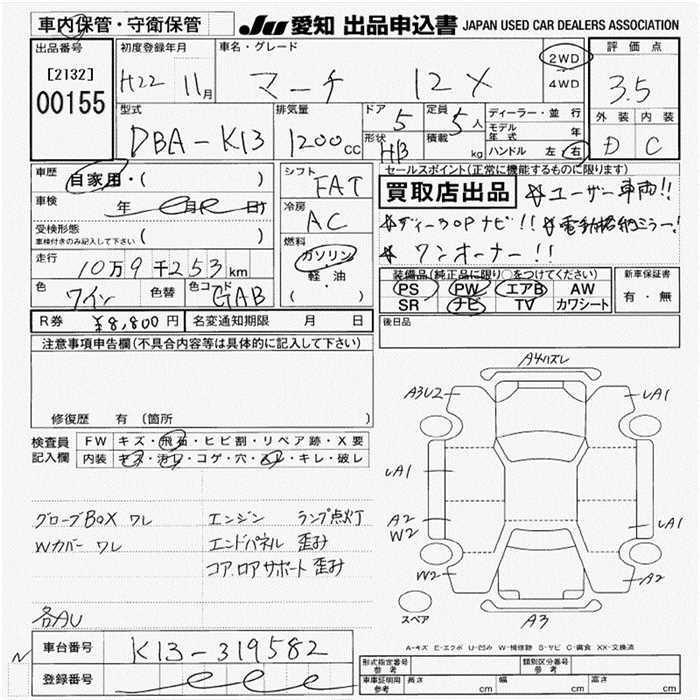 車内保管・守衛保管
JU 愛知 出品申込書 JAPAN USED CAR DEALERS ASSOCIATION
出品番号
[2132]
00155
初度登録年月
H22 11月
車名・グレード
マーチ 12X
2WD
4WD
評価点
3.5
外装 内装
D C
型式
DBA-K13
排気量
1200cc
ドア 5
形状 HB
定員 5人
積載 kg
ディーラー・並行
モデル年式 年
ハンドル 左・右
車歴 自家用・( )
車検 年 月 日
受検形態
車検付きのみ記入して下さい ( )
走行 10万9千253km
色 ワイン 色替 色コード GAB
シフト FAT
冷房 AC
燃料
ガソリン
軽・油
( )
セールスポイント(正常に機能するものに限ります)
買取店出品 ☆ユーザー車両!!
☆ディーラOPナビ!! ☆電動格納ミラー!
☆ワンオーナー!!
装備品(純正品に限り○をつけてください)
PS PW エアB AW
SR ナビ TV カワシート
新車保証書
有・無
R券 ¥8,800円 名変通知期限 月 日
後日品
注意事項申告欄(不具合内容等は具体的に記入して下さい)
修復歴 有 (箇所 )
検査員記入欄
FW キズ・飛石・ヒビ割・リペア跡・X要
内装 キズ・汚レ・コゲ・穴・スレ・キレ・破レ
グローブBOX ワレ
Wカバー ワレ
エンジン ランプ点灯
エンドパネル 歪み
コア.ロアサポート 歪み
各AU
A4ハズレ
A3U2
UA1
UA1
A2
W2
UA1
W2
A2
A3
スペア
A-キズ E-エクボ U-凹み W-補修跡 S-サビ C-腐食 XX-交換済
N
車台番号 K13-319582
登録番号
形式指定番号 参考
類別区分番号 参考
車庫証明用 参考 長さ cm 幅 cm 高さ cm